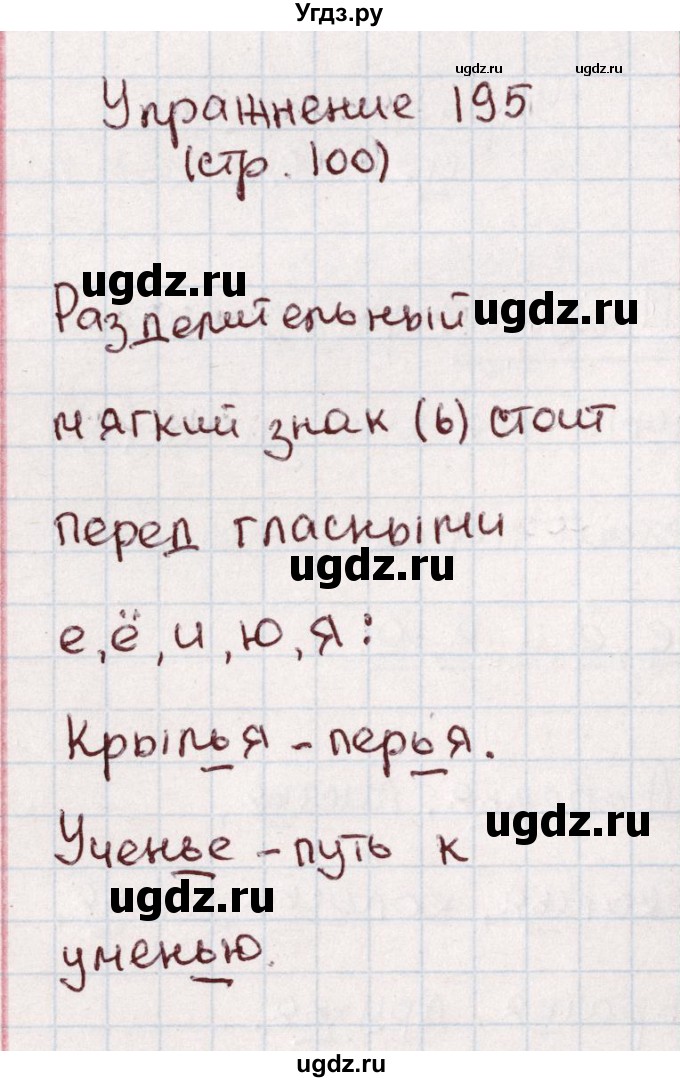 Угдз.ру
ugdz.ru ugdz.ru
Упражнение 195
(стр. 100)
ugdz.ru
Разделительный ugdz.ru
мягкий знак (ь) стоит
перед гласными
ugdz.ru
е, ё, и, ю, я:
Крылья - перья.
ugdz.ru
Ученье - путь к
ugdz.ru
уменью.
ugdz.ru